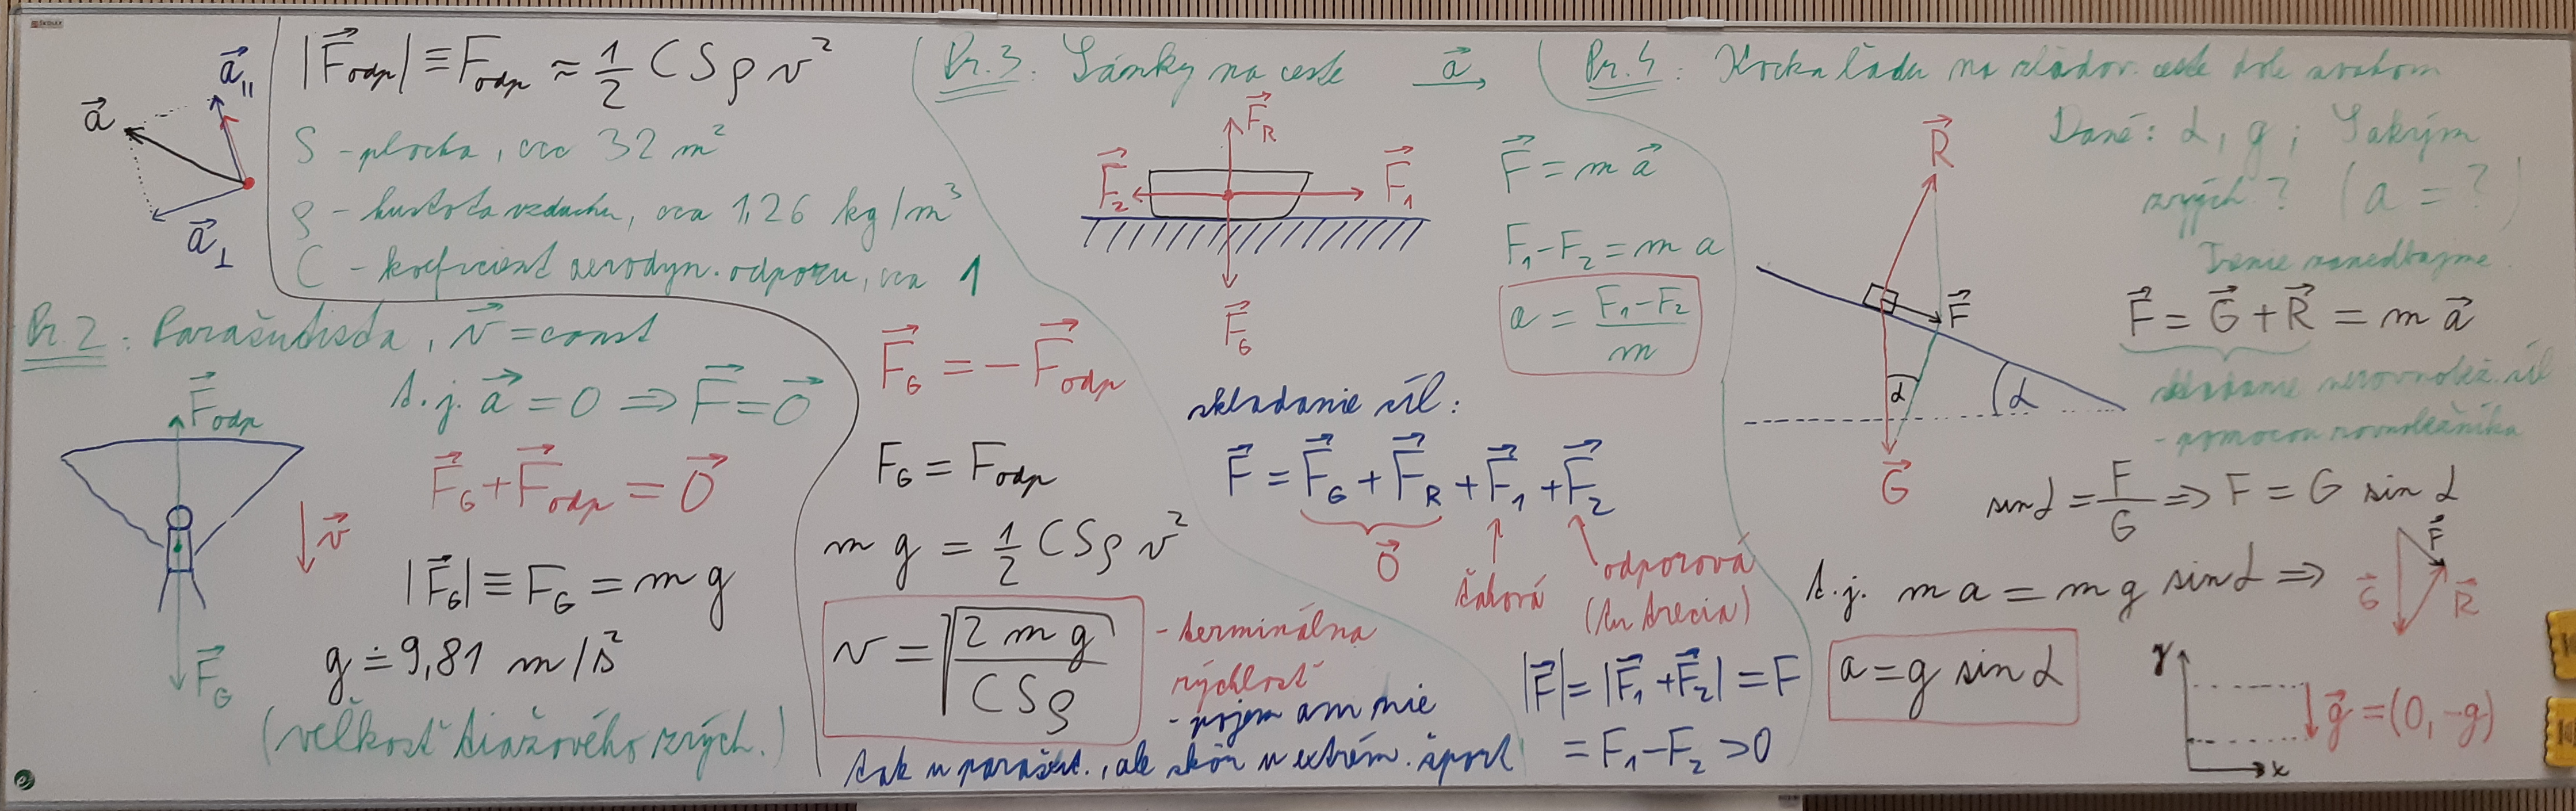 a⃗
a⃗∥
a⃗⊥
|F⃗odp| ≡ Fodp ≈ 1/2 C S ρ v²
S - plocha, cca 32 m²
ρ - hustota vzduchu, cca 1,26 kg/m³
C - koeficient aerodyn. odporu, cca 1
Pr. 2: Parašutista, v⃗ = const
t.j. a⃗ = 0 ⇒ F⃗ = 0⃗
F⃗odp
F⃗G + F⃗odp = 0⃗
v⃗
|F⃗G| ≡ FG = m g
g ≐ 9,81 m/s²
F⃗G
(veľkosť tiažového zrých.)
F⃗G = - F⃗odp
FG = Fodp
m g = 1/2 C S ρ v²
v = √(2 m g / C S ρ)
- terminálna
rýchlosť
- pojem ani nie
tak u parašut., ale skôr v extrém. šport
Pr. 3: Sánky na ceste
a⃗
F⃗R
F⃗2
F⃗1
F⃗G
F⃗ = m a⃗
F1 - F2 = m a
a = (F1 - F2) / m
skladanie síl:
F⃗ = F⃗G + F⃗R + F⃗1 + F⃗2
0⃗
ťahová
odporová
(tu trecia)
|F⃗| = |F⃗1 + F⃗2| = F
= F1 - F2 > 0
Pr. 4: Kocka ľadu na zľadov. ceste dole svahom
Dané: α, g; S akým
zrých? (a = ?)
Trenie zanedbajme
R⃗
F⃗
α
α
G⃗
F⃗ = G⃗ + R⃗ = m a⃗
skladanie nerovnobež. síl
- pomocou rovnobežníka
sin α = F/G ⇒ F = G sin α
F⃗
G⃗
R⃗
t.j. m a = m g sin α ⇒
a = g sin α
y
x
g⃗ = (0, -g)